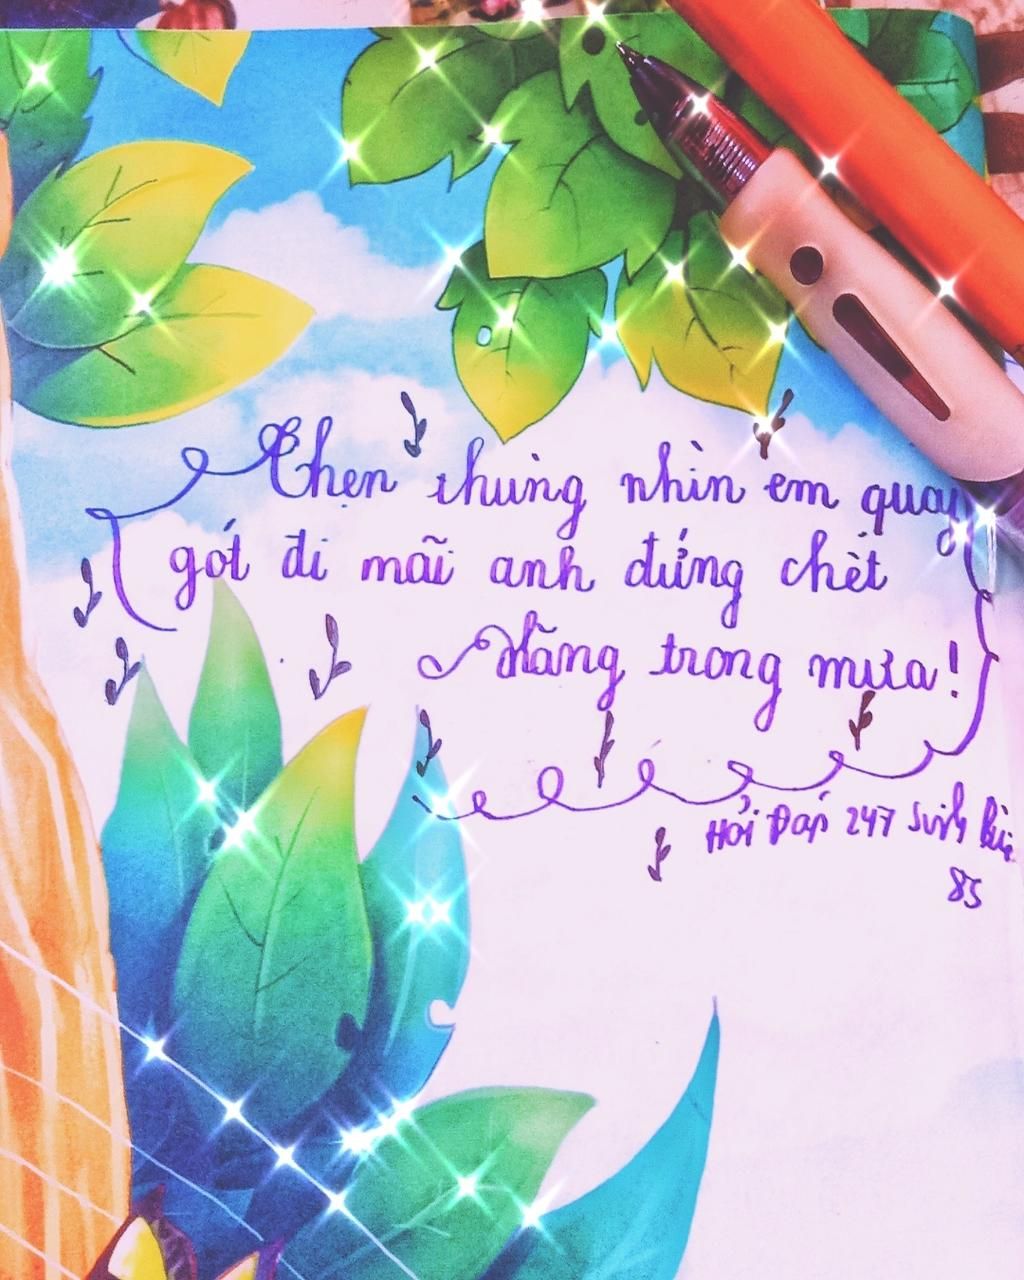 Thẹn thùng nhìn em quay
gót đi mãi anh đứng chết
Lặng trong mưa!
Hỏi Đáp 247 Sinh
85